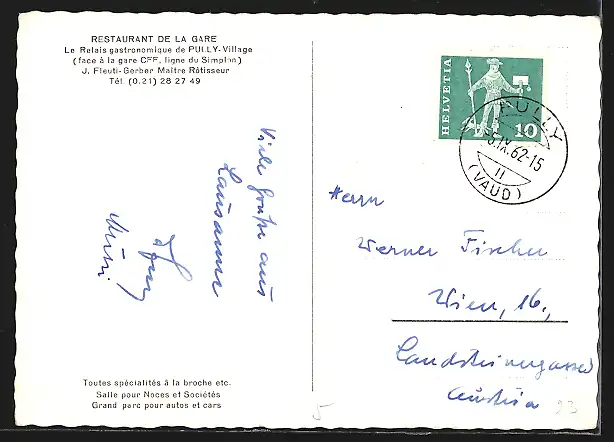 RESTAURANT DE LA GARE
Le Relais gastronomique de PULLY-Village
(face à la gare CFF, ligne du Simplon)
J. Fleuti-Gerber Maître Rôtisseur
Tél. (0.21) 28 27 49
Viele Grüße aus
Lausanne
Toutes spécialités à la broche etc.
Salle pour Noces et Sociétés
Grand parc pour autos et cars
HELVETIA
10
PULLY
5.IX.62-15
II
(VAUD)
Herrn
Werner Fischer
Wien, 16.,
Landsteinergasse
Austria